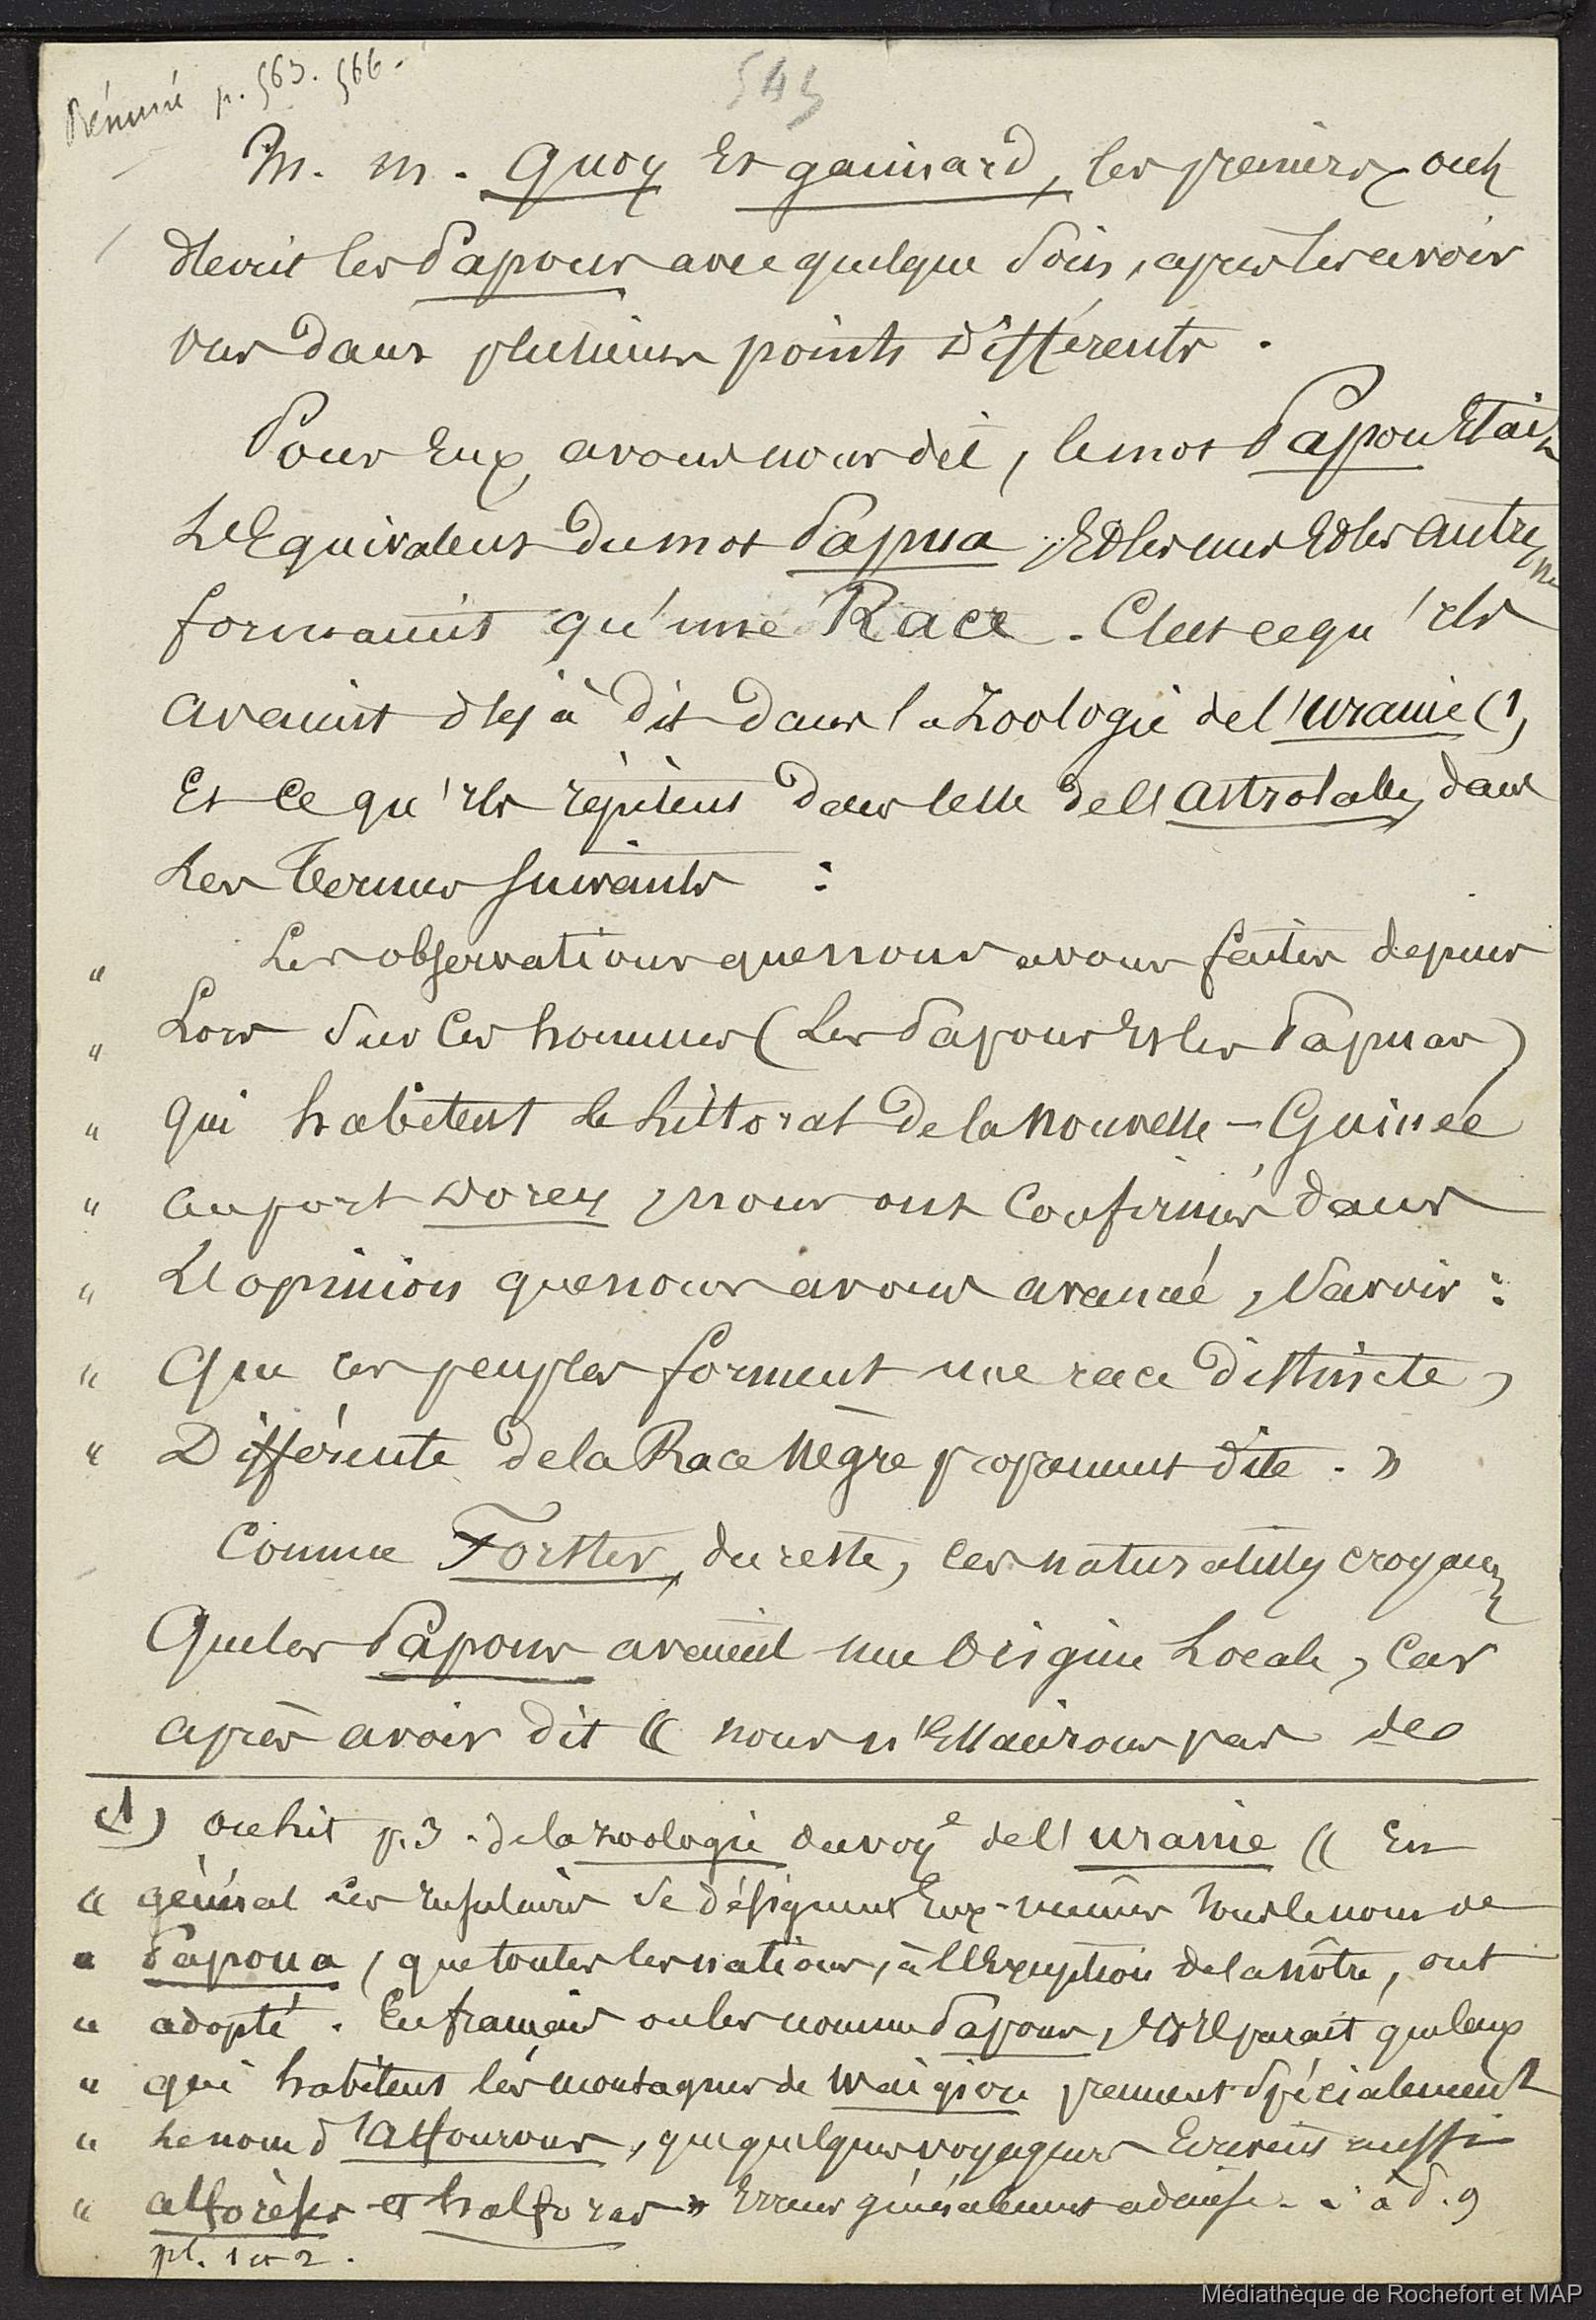 Résumé p. 565. 566.
545
M. M. Quoy et gaimard, les premiers, ont
décrit les Papous avec quelque soin, après les avoir
vus dans plusieurs points différents.
Pour eux, avons nous dit, le mot Papou était
l'équivalent du mot Papua, et les uns et les autres ne
formaient qu'une Race. C'est ce qu'ils
avaient déjà dit dans la zoologie de l'uranie (1)
et ce qu'ils répètent dans celle de l'astrolabe, dans
les termes suivants :
" Les observations que nous avons faites depuis
" Lors sur ces hommes (Les Papous et les Papuas)
" qui habitent le littoral de la nouvelle-Guinée
" au port Dorey, nous ont confirmés dans
" L'opinion que nous avons avancée, savoir :
" Que ces peuples forment une race distincte,
" Différente de la Race nègre proprement dite. "
Comme Forster, du reste, ces naturalistes croyaient
Que les Papous avaient une origine Locale, car
après avoir dit « nous n'essairons pas de
(1) on lit p. 3. de la zoologie du voy.e de l'uranie « En
« général ces insulaires se désignent eux-mêmes sous le nom de
" Papoua, que toutes les nations, à l'exception de la nôtre, ont
" adopté. En français on les nomme Papous, et il parait que ceux
" qui habitent les montagnes de Waigiou prennent spécialement
" le nom d'Alfourous, que quelques voyageurs écrivent aussi
" alforèses et halforas » Erreur généralement admise. c. à d. 9
pl. 1 et 2.
Médiathèque de Rochefort et MAP